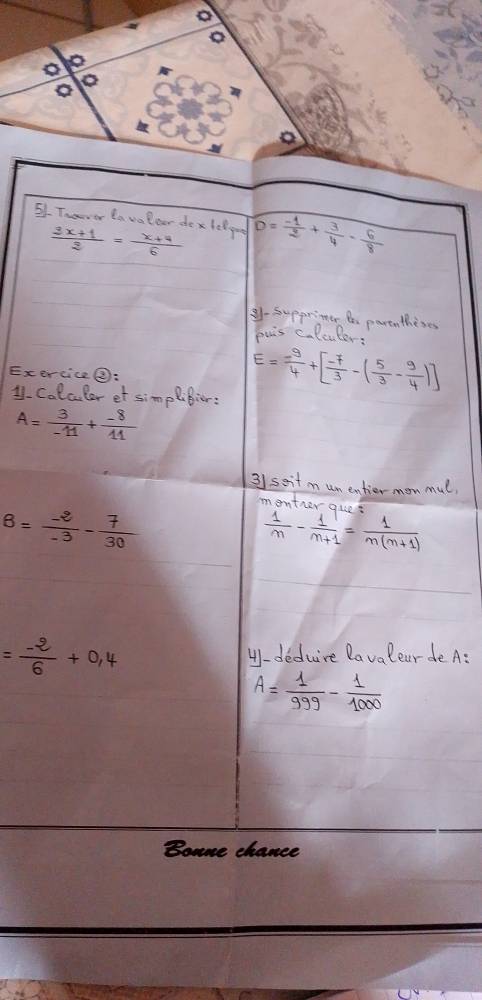 5)- Trouver la valeur de x telque
2x+1/2 = x+4/6
Exercice ②:
1)- Calculer et simplifier:
A = 3/-11 + -8/11
B = -2/-3 - 7/30
= -2/6 + 0,4
D = -1/2 + 3/4 - 6/8
2)- Supprimer les parenthèses
puis calculer:
E = -9/4 + [-7/3 - (5/3 - 9/4)]
3) soit n un entier non nul,
montrer que:
1/n - 1/n+1 = 1/n(n+1)
4)- déduire la valeur de A:
A = 1/999 - 1/1000
Bonne chance